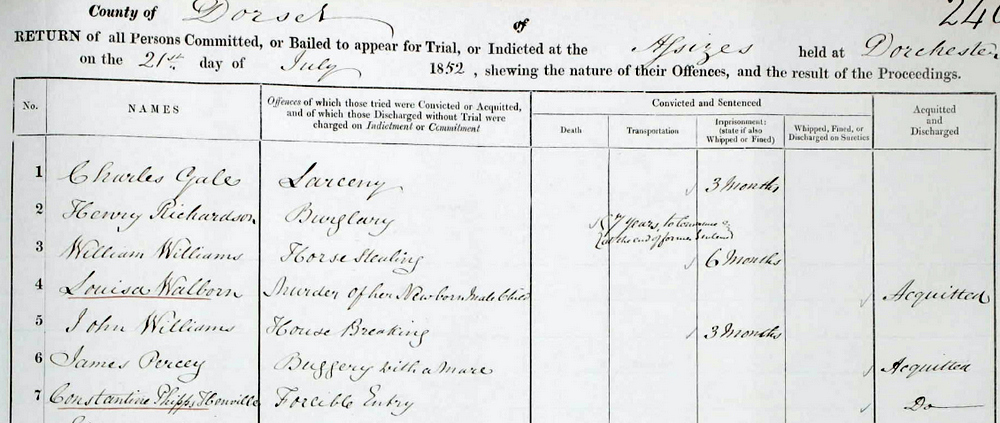 County of Dorset
240
of
RETURN of all Persons Committed, or Bailed to appear for Trial, or Indicted at the Assizes held at Dorchester
on the 21st day of July 1852, shewing the nature of their Offences, and the result of the Proceedings.
No. NAMES Offences of which those tried were Convicted or Acquitted, and of which those Discharged without Trial were charged on Indictment or Commitment Convicted and Sentenced Acquitted and Discharged
Death Transportation Imprisonment: (state if also Whipped or Fined) Whipped, Fined, or Discharged on Sureties
1 Charles Gale Larceny 3 Months
2 Henry Richardson Burglary 7 years, to commence
at the end of former Sentence
3 William Williams Horse Stealing 6 Months
4 Louisa Walborn Murder of her Newborn Male Child Acquitted
5 John Williams House Breaking 3 Months
6 James Percey Buggery with a mare Acquitted
7 Constantine Phipps Henville Forcible Entry Do